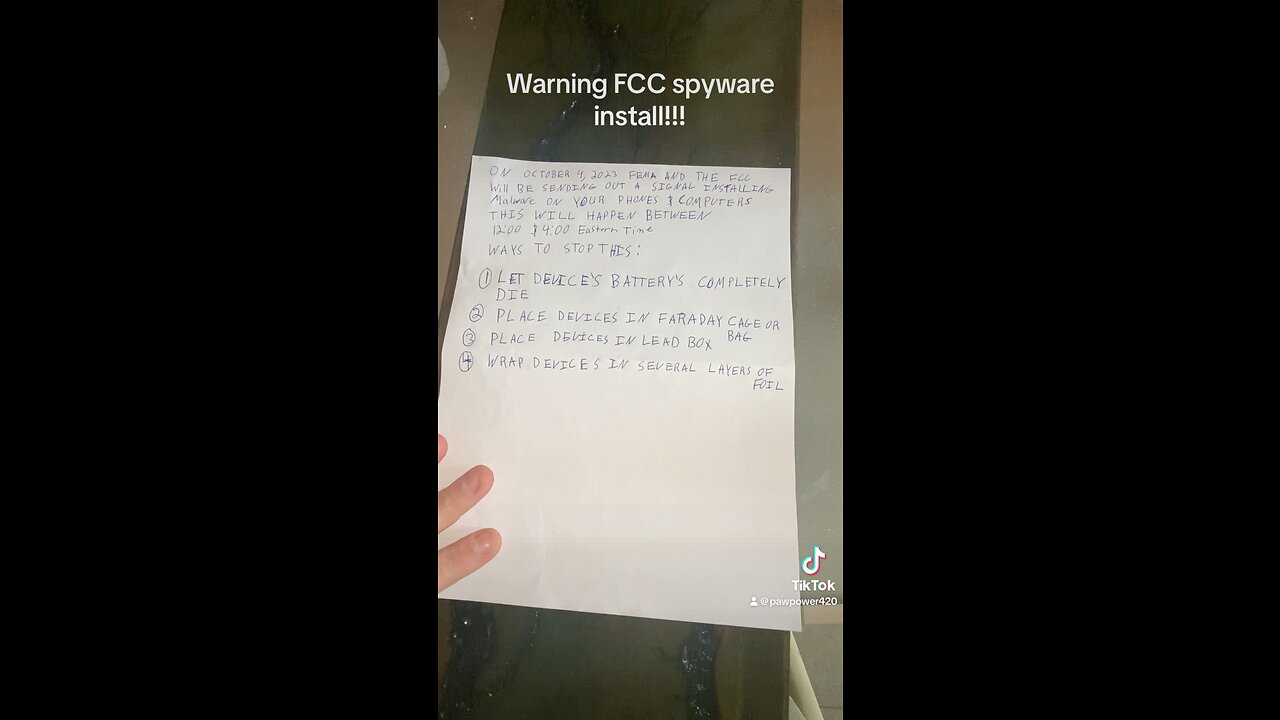 Warning FCC spyware
install!!!
ON OCTOBER 4, 2023 FEMA AND THE FCC
Will BE SENDING OUT A SIGNAL INSTALLING
Malware ON YOUR PHONES & COMPUTERS
THIS WILL HAPPEN BETWEEN
12:00 & 4:00 Eastern Time
WAYS TO STOP THIS:
① LET DEVICE'S BATTERY'S COMPLETELY
DIE
② PLACE DEVICES IN FARADAY CAGE OR
BAG
③ PLACE DEVICES IN LEAD BOX
④ WRAP DEVICES IN SEVERAL LAYERS OF
FOIL
TikTok
@pawpower420